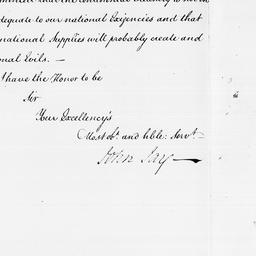 adequate to our national Exigencies and that
national Supplies will probably create and
onal Evils. —
I have the Honor to be
Sir
Your Excellency's
Most obt. and hble: Servt —
John Jay —